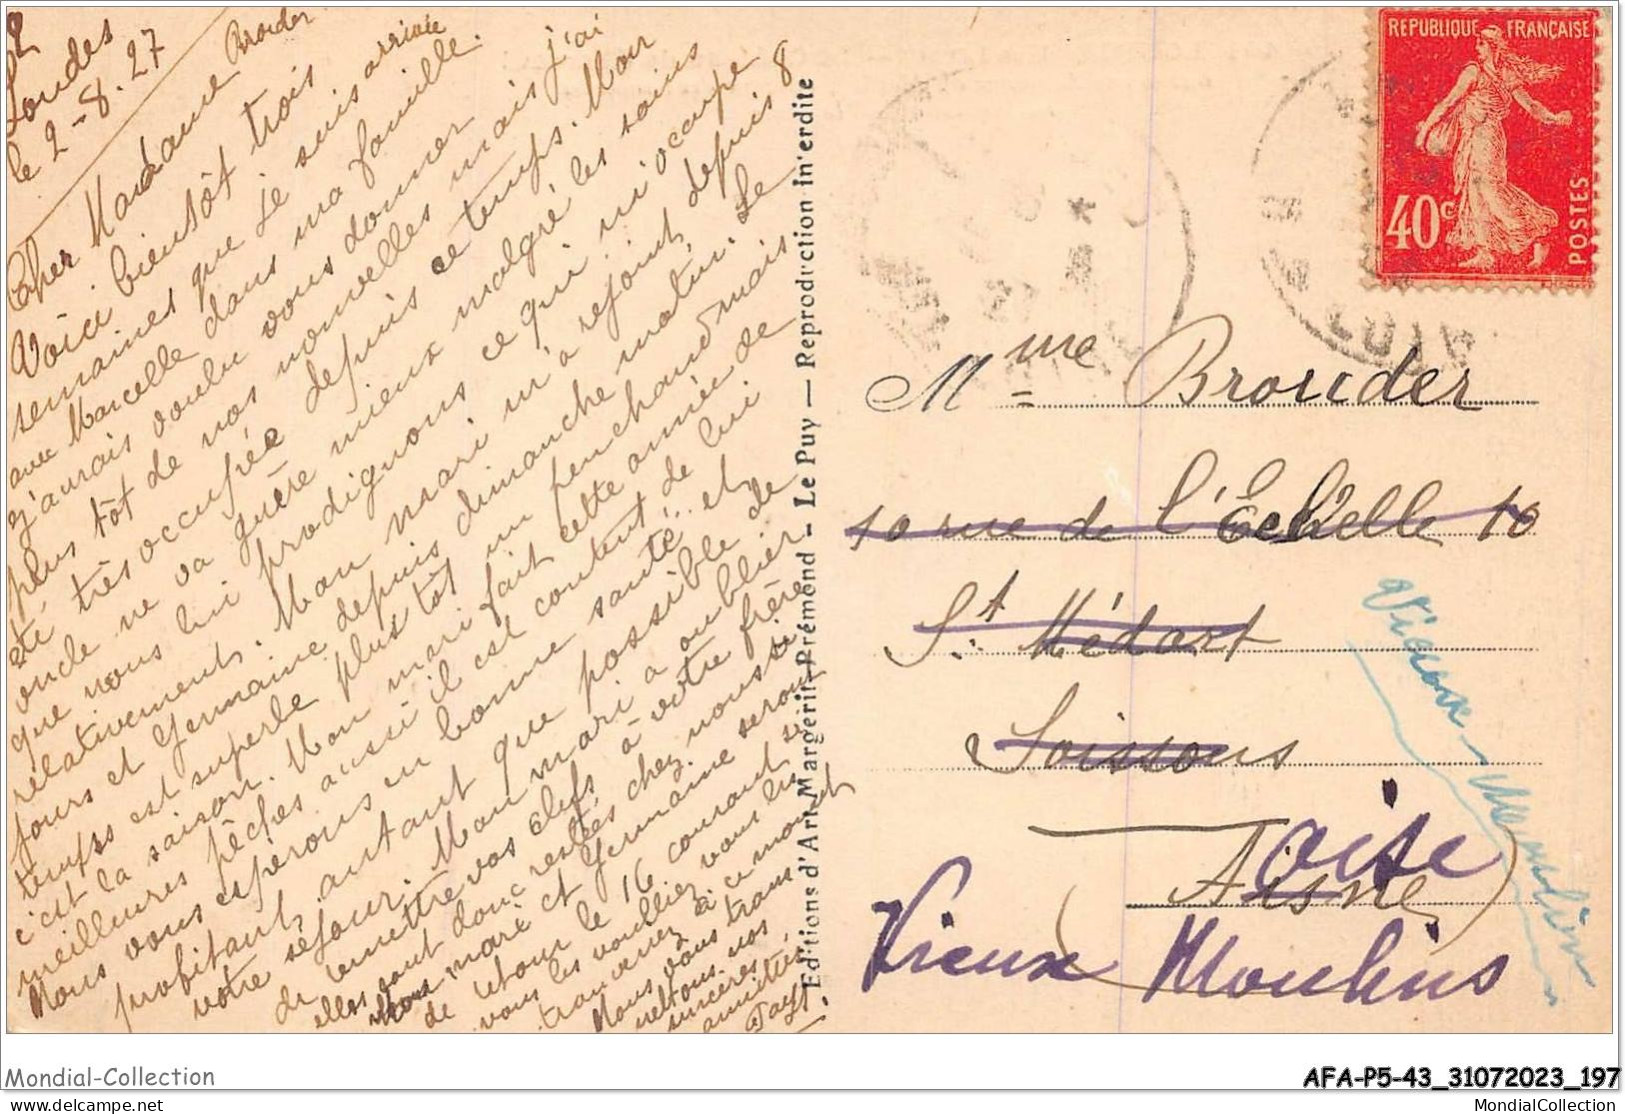 Loudes
le 2-8.27
Cher Madame Brouder
Voici bientôt trois
semaines que je suis arrivée
avec Marcelle dans ma famille.
j'aurais voulu vous donner
plus tôt de nos nouvelles mais j'ai
été très occupée depuis ce temps. Mon
oncle ne va guère mieux malgré les soins
que nous lui prodiguons ce qui m'occupe
relativement. Mon mari m'a rejoint depuis 8
jours et Germaine depuis dimanche matin. Le
temps est superbe plus tôt un peu chaud mais
c'est la saison. Mon mari fait cette année de
meilleures pêches aussi il est content de lui
Nous vous espérons en bonne santé et
profitant autant que possible de
votre séjour. Mon mari a oublier
de remettre vos clefs à votre frère
elles sont donc restées chez nous si
Mon mari et Germaine seront
de retour le 16 courant si
vous les vouliez vous les
trouverez à ce moment
Nous vous trans
mettons nos
sincères
amitiés.
Editions d'Art Margerit-Brémond - Le Puy — Reproduction interdite
REPUBLIQUE FRANÇAISE
40c
POSTES
Mme Brouder
10 rue de l'Echelle 10
St Médart
Soissons
Aisne
Oise
Vieux Moulins
Vieux-Moulin
Mondial-Collection
AFA-P5-43_31072023_197
delcampe.net
MondialCollection